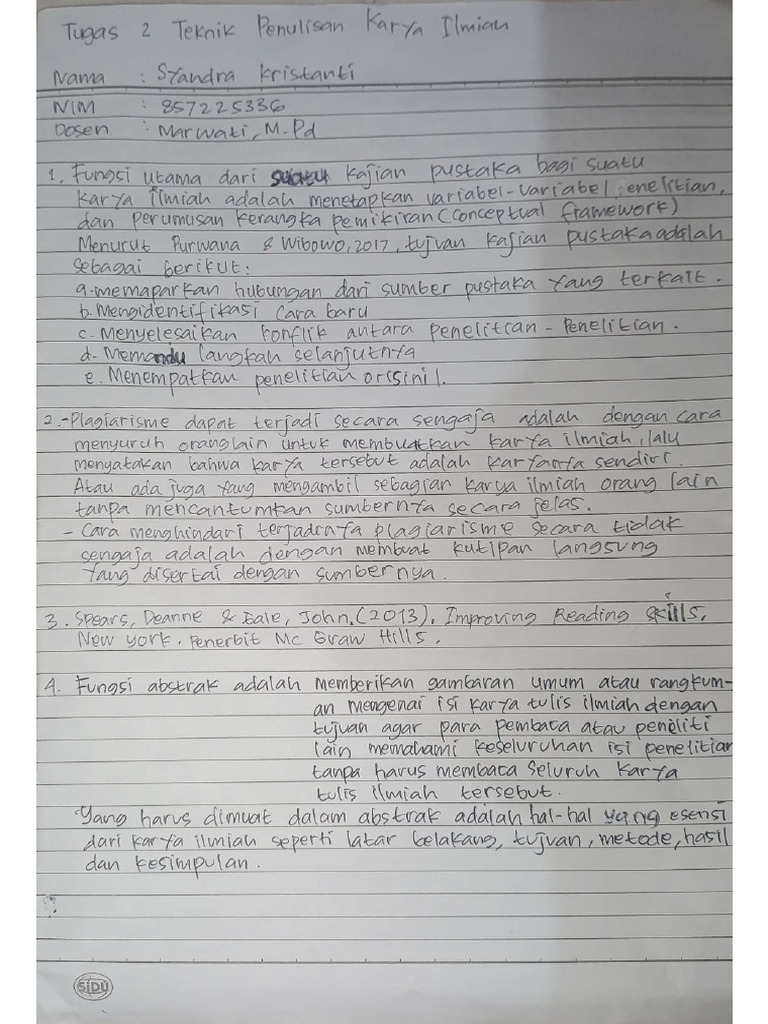 Tugas 2 Teknik Penulisan Karya Ilmiah
Nama : Syandra Kristanti
NIM : 857225336
Dosen : Marwati, M.Pd
1. Fungsi utama dari suatu kajian pustaka bagi suatu
karya ilmiah adalah menetapkan variabel-variabel enelitian,
dan perumusan kerangka pemikiran (conceptual framework)
Menurut Purwana & Wibowo, 2017, tujuan kajian pustaka adalah
sebagai berikut:
a. memaparkan hubungan dari sumber pustaka yang terkait.
b. Mengidentifikasi cara baru
c. Menyelesaikan konflik antara penelitian - Penelitian.
d. Memandu langkah selanjutnya
e. Menempatkan penelitian orisinil.
2. - Plagiarisme dapat terjadi secara sengaja adalah dengan cara
menyuruh orang lain untuk membuatkan karya ilmiah, lalu
menyatakan bahwa karya tersebut adalah karyanya sendiri.
Atau ada juga yang mengambil sebagian karya ilmiah orang lain
tanpa mencantumkan sumbernya secara jelas.
- Cara menghindari terjadinya plagiarisme secara tidak
sengaja adalah dengan membuat kutipan langsung
yang disertai dengan sumbernya.
3. Spears, Deanne & Eale, John, (2013). Improving Reading Skills,
New york. Penerbit Mc Graw Hills.
4. Fungsi abstrak adalah memberikan gambaran umum atau rangkum-
an mengenai isi karya tulis ilmiah dengan
tujuan agar para pembaca atau peneliti
lain memahami keseluruhan isi penelitian
tanpa harus membaca seluruh karya
tulis ilmiah tersebut.
Yang harus dimuat dalam abstrak adalah hal-hal yang esensi
dari karya ilmiah seperti latar belakang, tujuan, metode, hasil
dan kesimpulan.
SiDU